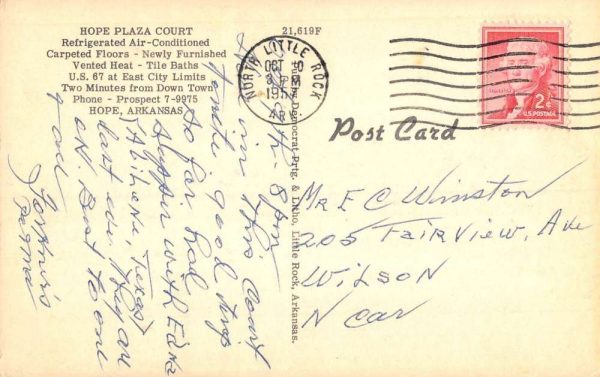 HOPE PLAZA COURT
Refrigerated Air-Conditioned
Carpeted Floors - Newly Furnished
Vented Heat - Tile Baths
U.S. 67 at East City Limits
Two Minutes from Down Town
Phone - Prospect 7-9975
HOPE, ARKANSAS
21,619F
NORTH LITTLE ROCK
OCT 10
PM
195
ARK
2¢
U.S. POSTAGE
Post Card
Democrat Prtg. & Litho, Little Rock, Arkansas.
8 pm
in this court
good trip
so far had
supper with Edna
(Abilene, Texas)
last eve. They are
O.K. Best to one
& all
Mr E C Winston
205 FairView, Ave
Wilson
N Car